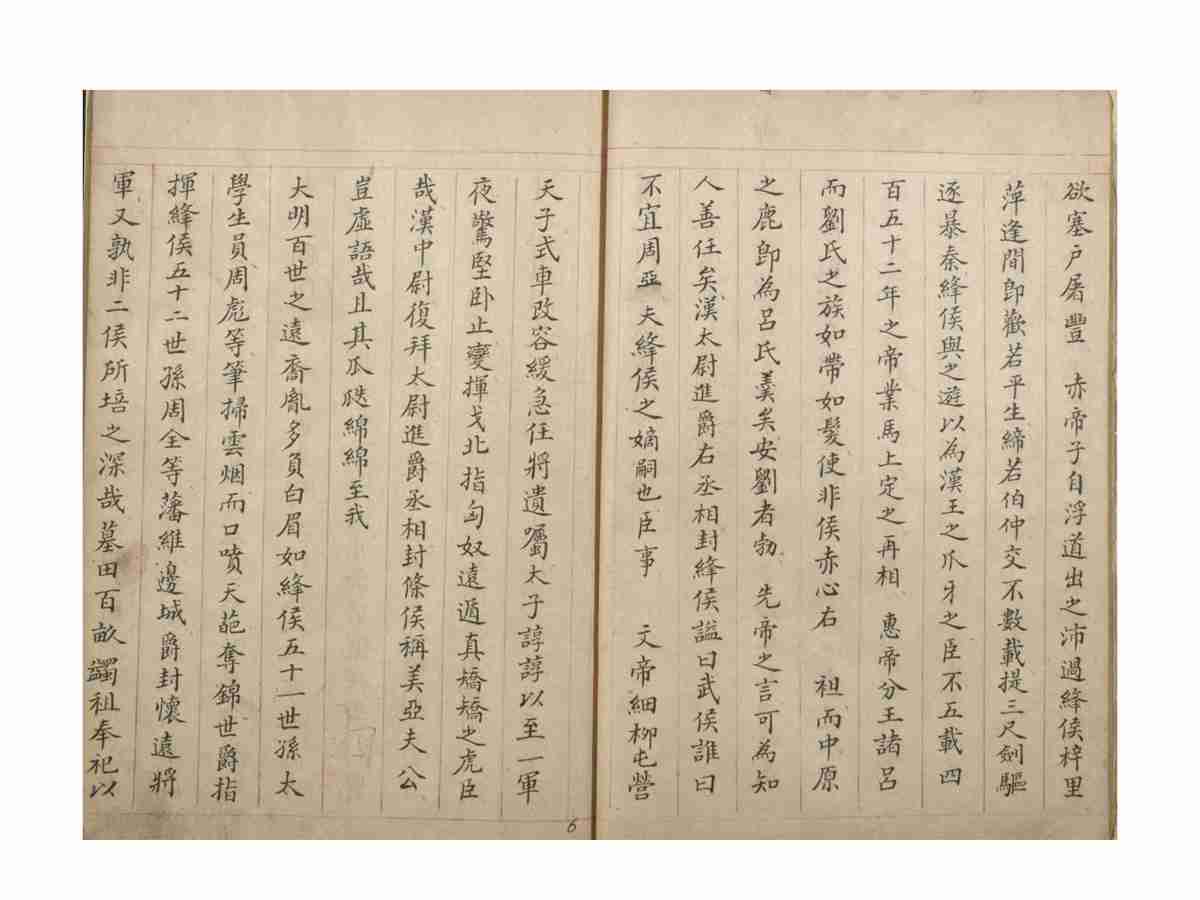 欲塞户屠豐　赤帝子自浮道出之沛過絳侯梓里
萍逢間卽歡若平生締若伯仲交不數載提三尺劍驅
逐暴秦絳侯與之遊以為漢王之爪牙之臣不五載四
百五十二年之帝業馬上定之再相　惠帝分王諸呂
而劉氏之族如帶如髮使非侯赤心右　袒而中原
之鹿卽為呂氏羹矣安劉者勃　先帝之言可為知
人善任矣漢太尉進爵右丞相封絳侯謚曰武侯誰曰
不宜周亞夫絳侯之嫡嗣也臣事　文帝細柳屯營
天子式車改容緩急任將遺囑太子諄諄以至一軍
夜驚堅卧止變揮戈北指匈奴遠遁真矯矯之虎臣
哉漢中尉復拜太尉進爵丞相封條侯稱美亞夫公
豈虛語哉且其瓜瓞綿綿至我
大明百世之遠裔胤多負白眉如絳侯五十一世孫太
學生員周彪等筆掃雲烟而口噴天葩奪錦世爵指
揮絳侯五十二世孫周全等藩維邊城爵封懷遠將
軍又孰非二侯所培之深哉墓田百畝蠲租奉祀以
6